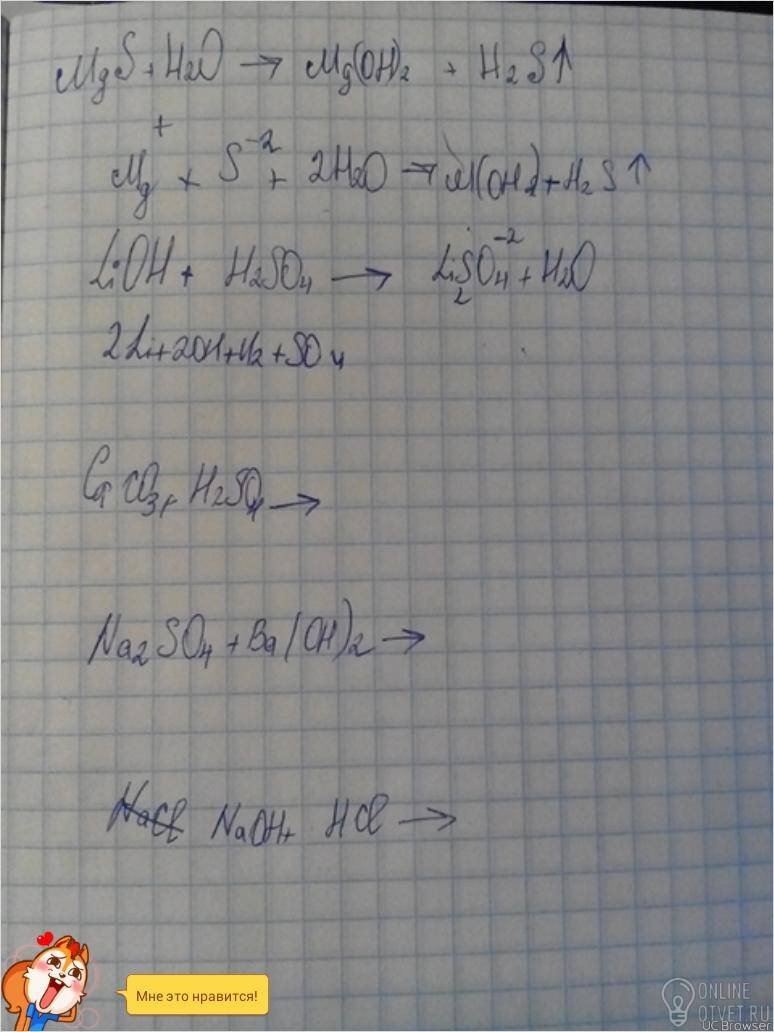 MgS + H2O → Mg(OH)2 + H2S↑
Mg⁺ + S⁻² + 2H2O → M(OH2) + H2S↑
LiOH + H2SO4 → Li2SO4⁻² + H2O
2Li+2OH+H2+SO4
CaCO3+ H2SO4 →
Na2SO4 + Ba(OH)2 →
NaCl NaOH+ HCl →
Мне это нравится!
ONLINE
OTVET.RU
UC Browser